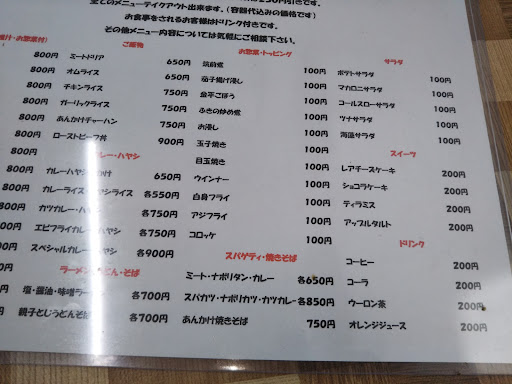 全てのメニューテイクアウト出来ます。(容器代込みの価格です)
お食事をされるお客様はドリンク付きです。
その他メニュー内容については気軽にご相談下さい。
汁・お惣菜付)
800円
800円
800円
800円
800円
800円
800円
800円
800円
ご飯物
ミートドリア 650円
オムライス 750円
チキンライス 750円
ガーリックライス 750円
あんかけチャーハン 750円
ローストビーフ丼 900円
カレー・ハヤシ
カレーハヤシ 650円
カレーライス・ハヤシライス 各550円
カツカレー・ハヤシ 各750円
エビフライカレー・ハヤシ 各750円
スペシャルカレー・ハヤシ 各900円
ラーメン・うどん・そば
塩・醤油・味噌ラーメン 各700円
親子とじうどんそば 各700円
お惣菜・トッピング
筑前煮 100円
茄子揚げ浸し 100円
金平ごぼう 100円
ふきの炒め煮 100円
お浸し 100円
玉子焼き 100円
目玉焼き 100円
ウインナー 100円
白身フライ 100円
アジフライ 100円
コロッケ 100円
スパゲティ・焼きそば
ミート・ナポリタン・カレー 各650円
スパカツ・ナポリカツ・カツカレー 各850円
あんかけ焼きそば 750円
サラダ
ポテトサラダ 100円
マカロニサラダ 100円
コールスローサラダ 100円
ツナサラダ 100円
海藻サラダ 100円
スイーツ
レアチーズケーキ 200円
ショコラケーキ 200円
ティラミス 200円
アップルタルト 200円
ドリンク
コーヒー 200円
コーラ 200円
ウーロン茶 200円
オレンジジュース 200円